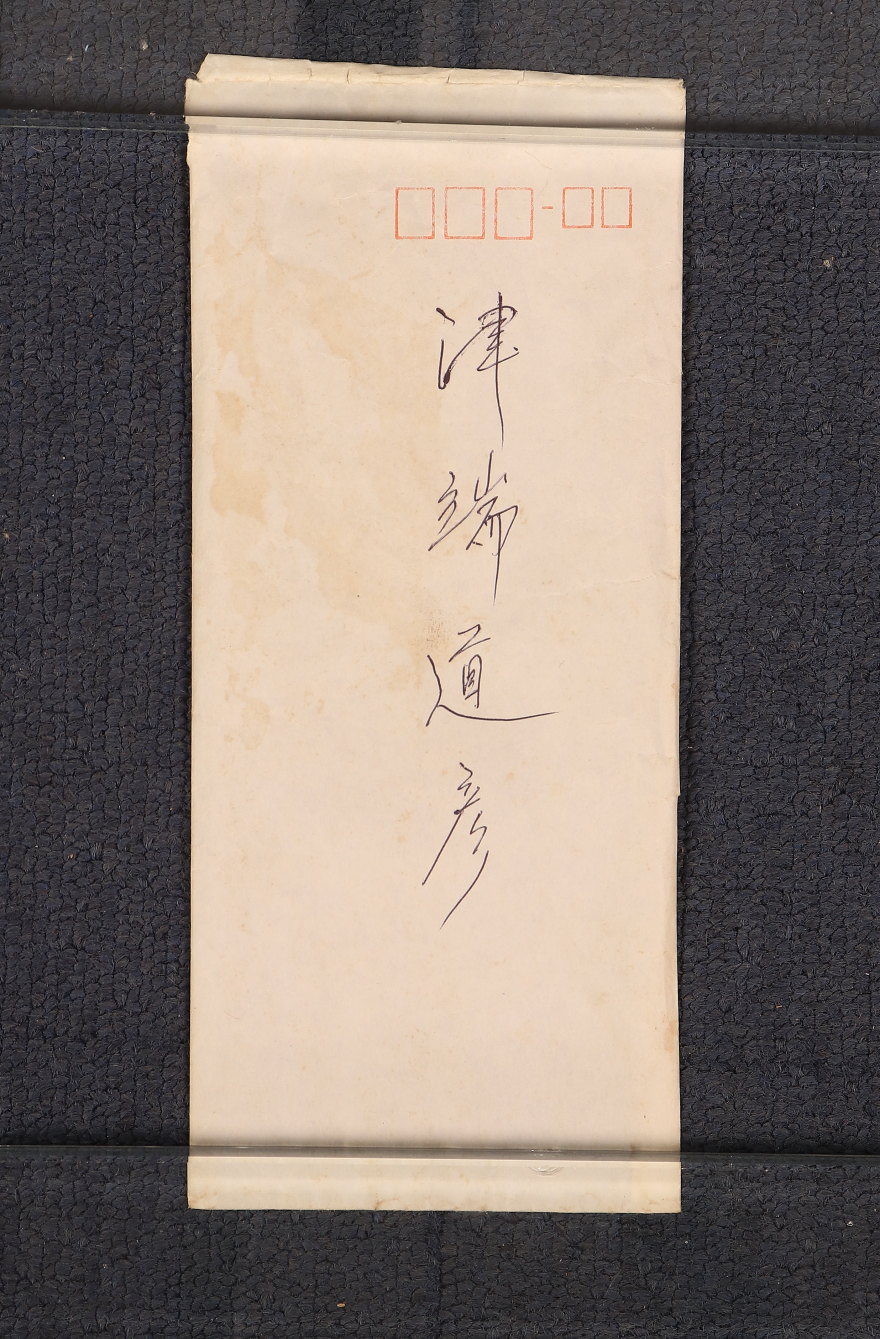 津端道彦